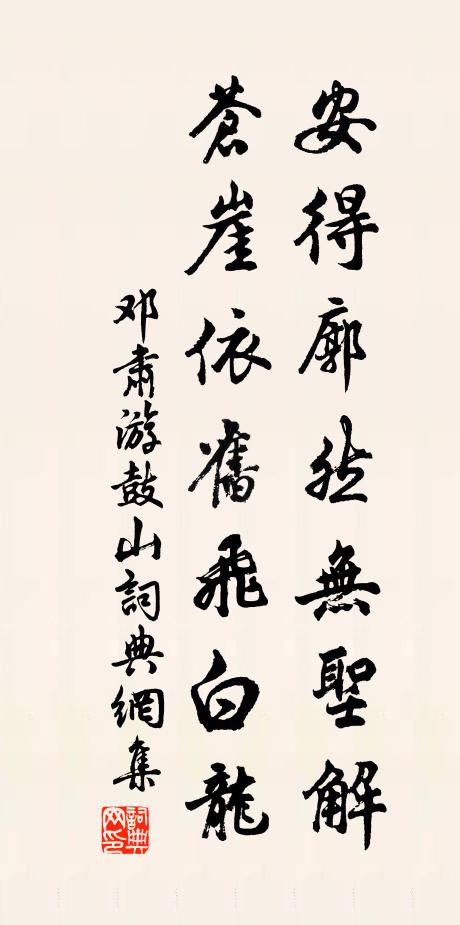 安得廓然無聖解
蒼崖依舊飛白龍
邓肅游鼓山詞典網集
詞典網印